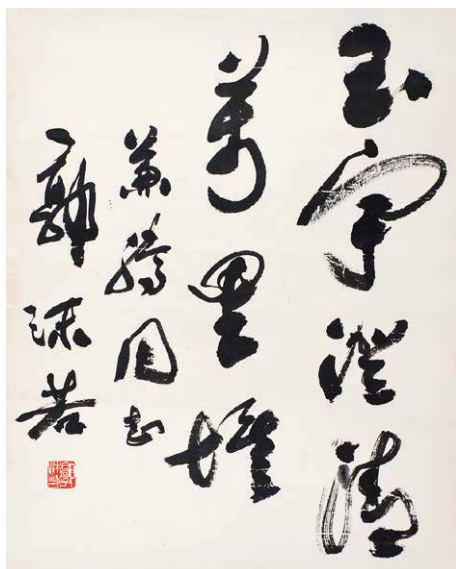 玉宇澄清
萬里埃
同志
郭沫若